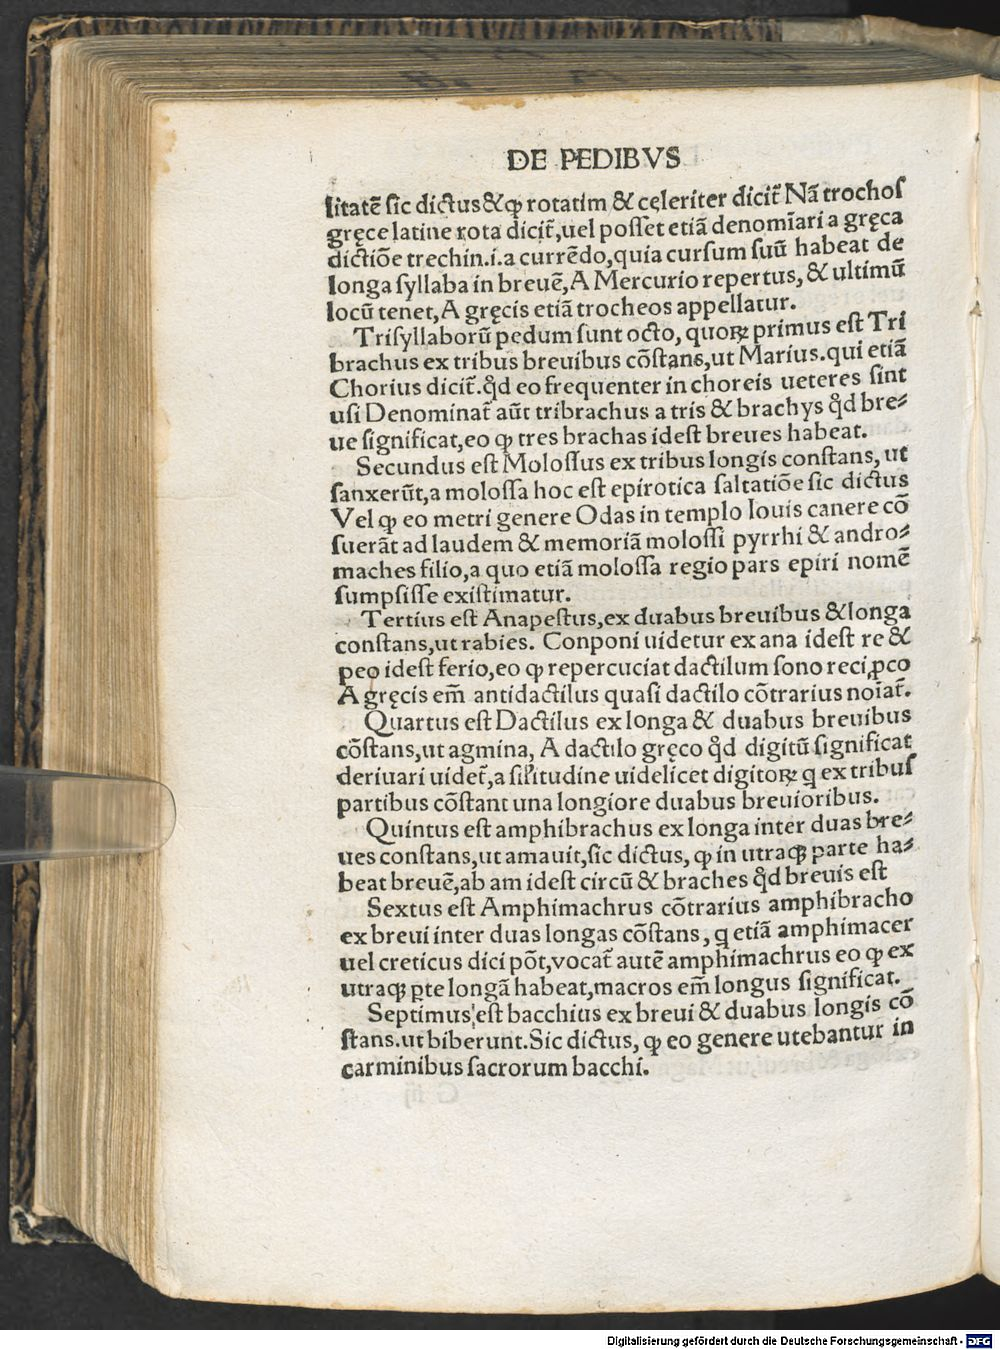 DE PEDIBVS
litatē sic dictus&ꝙ rotatim & cęleriter dicit̃ Nā trochos
gręce latine rota dicit̃,uel posset etiā denomīari a gręca
dictiōe trechin.i.a currēdo,quia cursum suū habeat de
longa syllaba in breuē,A Mercurio repertus,& ultimū
locū tenet,A gręcis etiā trocheos appellatur.
Trisyllaborū pedum sunt octo, quoꝝ primus est Tri
brachus ex tribus breuibus cōstans,ut Marius.qui etiā
Chorius dicit̃.ꝙd eo frequenter in choreis ueteres sint
usi Denominat̃ aūt tribrachus a tris & brachys ꝙd bre⸗
ue significat,eo ꝙ tres brachas idest breues habeat.
Secundus est Molossus ex tribus longis constans, ut
sanxerūt,a molossa hoc est epirotica saltatiōe sic dictus
Vel ꝙ eo metri genere Odas in templo Iouis canere cō
suerāt ad laudem & memoriā molossi pyrrhi & andro⸗
maches filio,a quo etiā molossa regio pars epiri nomē
sumpsisse existimatur.
Tertius est Anapestus,ex duabus breuibus &longa
constans,ut rabies. Conponi uidetur ex ana idest re &
peo idest ferio,eo ꝙ repercuciat dactilum sono reciꝓco
A gręcis em̄ antidactilus quasi dactilo cōtrarius noīat̃.
Quartus est Dactilus ex longa & duabus breuibus
cōstans,ut agmina, A dactilo gręco ꝙd digitū significat
deriuari uidet̃,a sil̃itudine uidelicet digitoꝝ q ex tribus
partibus cōstant una longiore duabus breuioribus.
Quintus est amphibrachus ex longa inter duas bre⸗
ues constans,ut amauit,sic dictus, ꝙ in utraqꝫ parte ha⸗
beat breuē,ab am idest circū & braches ꝙd breuis est
Sextus est Amphimachrus cōtrarius amphibracho
ex breui inter duas longas cōstans, q etiā amphimacer
uel creticus dici pōt,vocat̃ autē amphimachrus eo ꝙ ex
utraqꝫ ꝑte longā habeat,macros em̄ longus significat.
Septimus est bacchius ex breui & duabus longis cō
stans.ut biberunt.Sic dictus, ꝙ eo genere utebantur in
carminibus sacrorum bacchi.
Digitalisierung gefördert durch die Deutsche Forschungsgemeinschaft - DFG